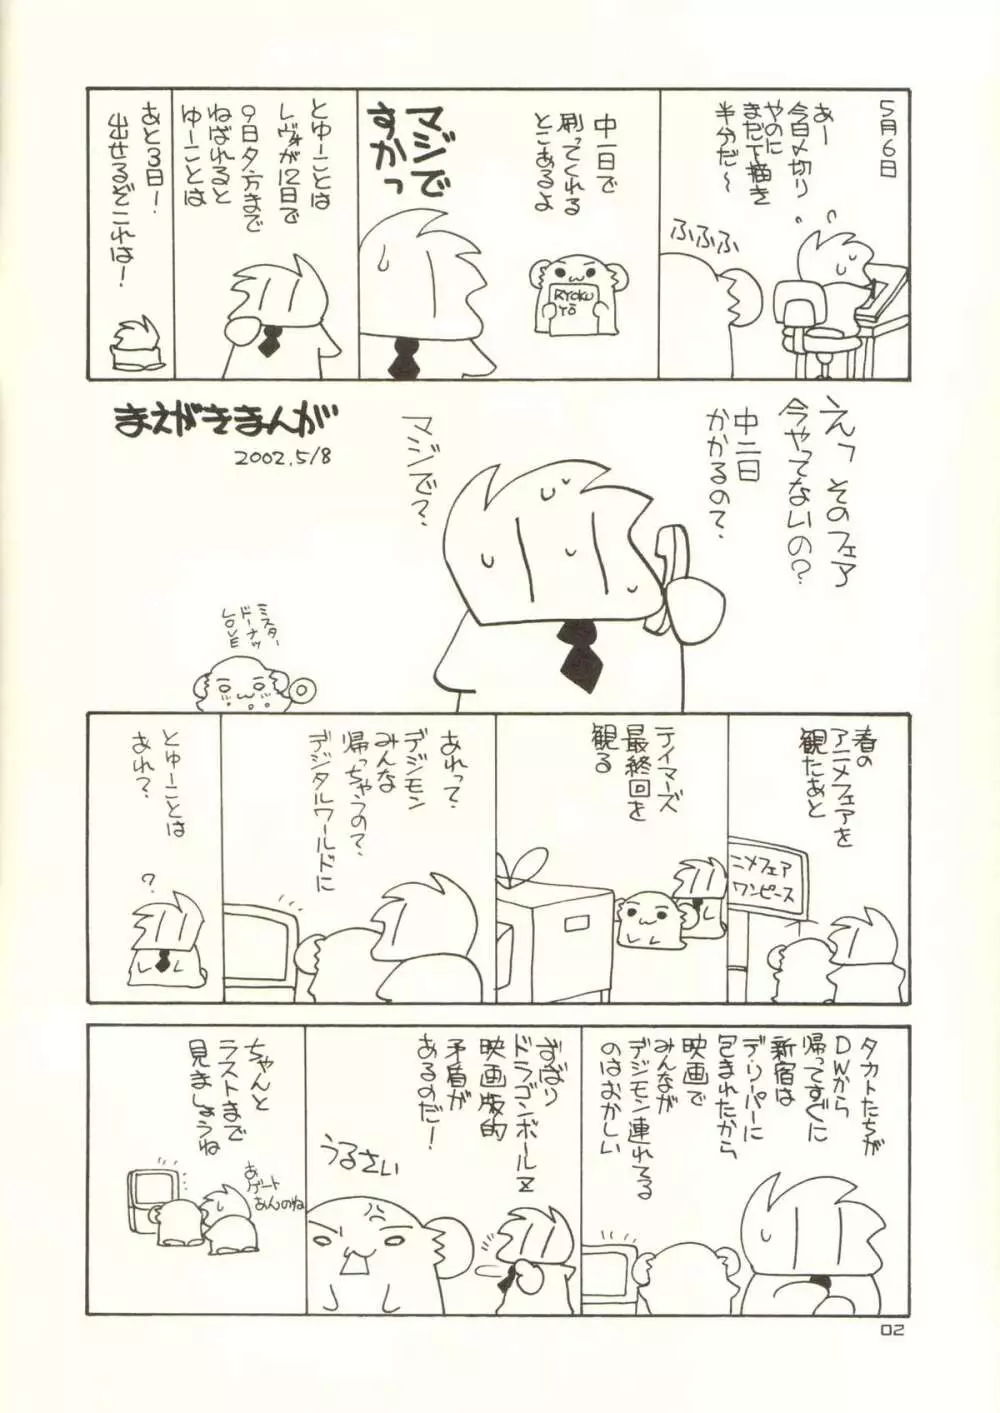 5月6日
あー
今日〆切り
やのに
まだ下描き
半分だ〜
ふふふ
中一日で
刷ってくれる
とこあるよ
RYOKU
YŌ
マジで
すかっ
とゆーことは
レヴォが12日で
9日夕方まで
ねばれると
ゆーことは
あと3日!
出せるぞこれは!
まえがきまんが
2002.5/8
えっ そのフェア
今やってないの?
中二日
かかるの?
マジで?
ミスター
ドーナツ
LOVE
春の
アニメフェアを
観たあと
ニメフェア
ワンピース
テイマーズ
最終回を
観る
あれって?
デジモン
みんな
帰っちゃうの?
デジタルワールドに
とゆーことは
あれ?
?
タカトたちが
DWから
帰ってすぐに
新宿は
デ・リーパーに
包まれたから
映画で
みんなが
デジモン連れてる
のはおかしい
ずばり
ドラゴンボールZ
映画版的
矛盾が
あるのだ!
うるさい
ちゃんと
ラストまで
見ましょうね
あ
ゲート
あんのね
02